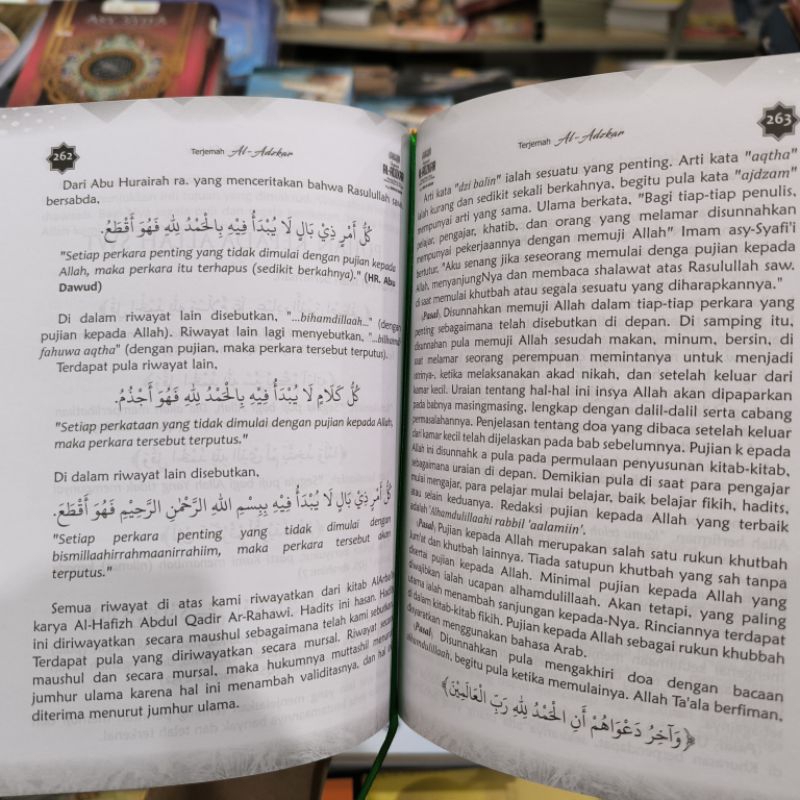 262
Terjemah Al-Adzkar
Dari Abu Hurairah ra. yang menceritakan bahwa Rasulullah saw.
bersabda,
كُلُّ أَمْرٍ ذِيْ بَالٍ لَا يُبْدَأُ فِيْهِ بِالْحَمْدُ لِلّٰهِ فَهُوَ أَقْطَعُ.
"Setiap perkara penting yang tidak dimulai dengan pujian kepada
Allah, maka perkara itu terhapus (sedikit berkahnya)." (HR. Abu
Dawud)
Di dalam riwayat lain disebutkan, "...bihamdillaah..." (dengan
pujian kepada Allah). Riwayat lain lagi menyebutkan, "...bilhamdi
fahuwa aqtha" (dengan pujian, maka perkara tersebut terputus).
Terdapat pula riwayat lain,
كُلُّ كَلَامٍ لَا يُبْدَأُ فِيْهِ بِالْحَمْدُ لِلّٰهِ فَهُوَ أَجْذَمُ.
"Setiap perkataan yang tidak dimulai dengan pujian kepada Allah,
maka perkara tersebut terputus."
Di dalam riwayat lain disebutkan,
كُلُّ أَمْرٍ ذِيْ بَالٍ لَا يُبْدَأُ فِيْهِ بِبِسْمِ اللهِ الرَّحْمٰنِ الرَّحِيْمِ فَهُوَ أَقْطَعَ.
"Setiap perkara penting yang tidak dimulai dengan
bismillaahirrahmaanirrahiim, maka perkara tersebut akan
terputus."
Semua riwayat di atas kami riwayatkan dari kitab
karya Al-Hafizh Abdul Qadir Ar-Rahawi. Hadits ini hasan.
ini diriwayatkan secara maushul sebagaimana telah kami sebutkan
Terdapat pula yang diriwayatkan secara mursal. Riwayat secara
maushul dan secara mursal, maka hukumnya muttashil menurut
jumhur ulama karena hal ini menambah validitasnya, dan hal ini
diterima menurut jumhur ulama.
263
Terjemah Al-Adzkar
Arti kata "dzi balin" ialah sesuatu yang penting. Arti kata "aqtha"
ialah kurang dan sedikit sekali berkahnya, begitu pula kata "ajdzam"
mempunyai arti yang sama. Ulama berkata, "Bagi tiap-tiap penulis,
pelajar, pengajar, khatib, dan orang yang melamar disunnahkan
mempunyai pekerjaannya dengan memuji Allah" Imam asy-Syafi'i
bertutur, "Aku senang jika seseorang memulai denga pujian kepada
Allah, menyanjungNya dan membaca shalawat atas Rasulullah saw.
di saat memulai khutbah atau segala sesuatu yang diharapkannya."
(Pasal) Disunnahkan memuji Allah dalam tiap-tiap perkara yang
penting sebagaimana telah disebutkan di depan. Di samping itu,
disunnahkan pula memuji Allah sesudah makan, minum, bersin, di
saat melamar seorang perempuan memintanya untuk menjadi
istrinya-, ketika melaksanakan akad nikah, dan setelah keluar dari
kamar kecil. Uraian tentang hal-hal ini insya Allah akan dipaparkan
pada babnya masingmasing, lengkap dengan dalil-dalil serta cabang
permasalahannya. Penjelasan tentang doa yang dibaca setelah keluar
dari kamar kecil telah dijelaskan pada bab sebelumnya. Pujian k epada
Allah ini disunnahk a pula pada permulaan penyusunan kitab-kitab,
sebagaimana uraian di depan. Demikian pula di saat para pengajar
mulai mengajar, para pelajar mulai belajar, baik belajar fikih, hadits,
atau selain keduanya. Redaksi pujian kepada Allah yang terbaik
adalah 'Alhamdulillaahi rabbil 'aalamiin'.
(Pasal) Pujian kepada Allah merupakan salah satu rukun khutbah
Jum'at dan khutbah lainnya. Tiada satupun khutbah yang sah tanpa
disertai pujian kepada Allah. Minimal pujian kepada Allah yang
diwajibkan ialah ucapan alhamdulillaah. Akan tetapi, yang paling
utama ialah menambah sanjungan kepada-Nya. Rinciannya terdapat
di dalam kitab-kitab fikih. Pujian kepada Allah sebagai rukun khubbah
disyaratkan menggunakan bahasa Arab.
(Pasal) Disunnahkan pula mengakhiri doa dengan bacaan
alhamdulillaah, begitu pula ketika memulainya. Allah Ta'ala berfiman,
﴿وَآخِرُ دَعْوَاهُمْ أَنِ الْحَمْدُ لِلّٰهِ رَبِّ الْعَالَمِيْنَ﴾